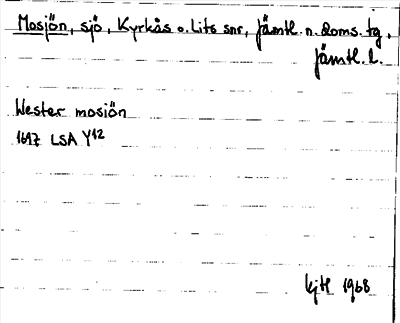 Mosjön, sjö, Kyrkås o. Lits snr, Jämtl. n. doms. tg,
Jämtl. l.
Wester mosiön
1697 LSA Y12
kjtl 1968